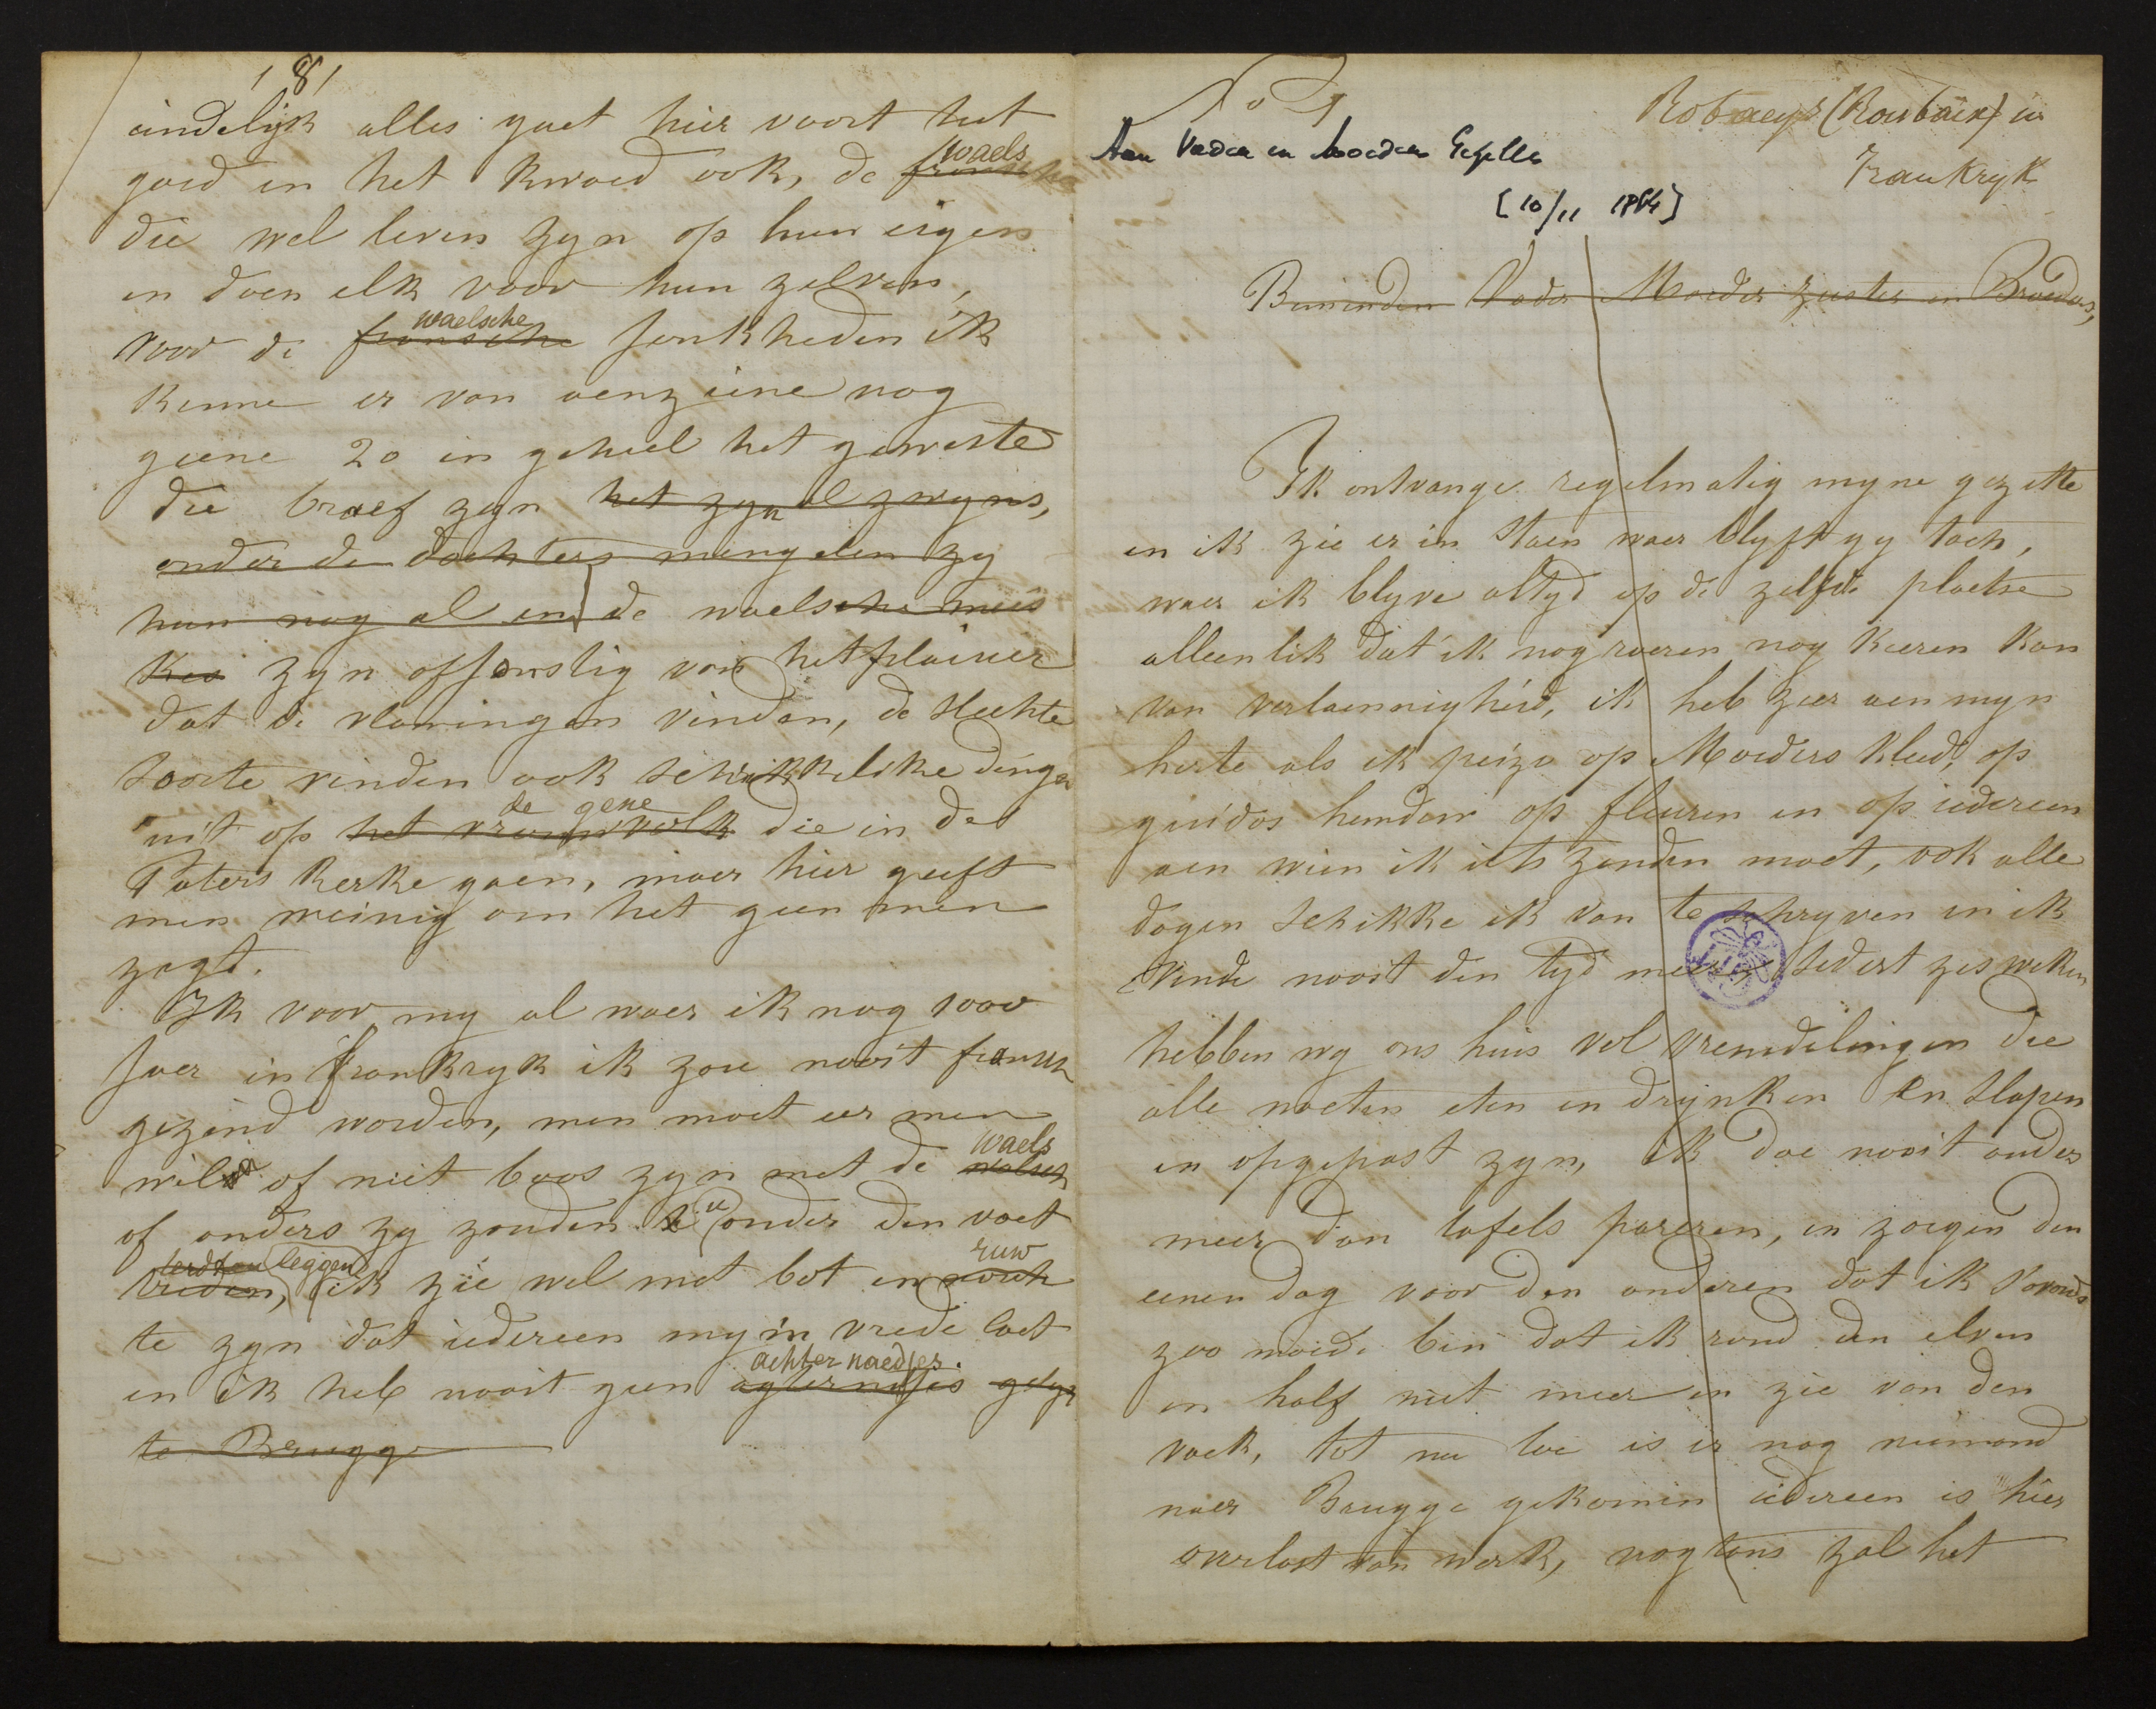 181
eindelijk alles gaet hier voort het
goed en het kwaed ook, de fransche waels
die wel leven zyn op hun eigen
en doen elk voor hun zelven,
voor de fransche waelsche jonkheden ik
kenne er van aenziene nog
geene 20 in geheel het geweste
die braef zyn het zyn al zwyns,
onder de dochters mengelen zy
hun nog al en de waelsche meis
kes zyn afjonstig van het plaisier
dat de vlamingen vinden, de slechte
soorte vinden ook schrikkelike dingen
uit op het vrouwvolk de gene die in de
Paters kerke gaen, maer hier geeft
men weinig om het geen men
zegt.
Ik voor my al waer ik nog 1000
jaer in frankryk ik zoe nooit fransch
gezind worden, men moet eer men
wil of niet boos zyn met de walsch waels
of anders zy zouden u onder den voet
treden, leggen ik zie wel met bot en ruw
te zyn dat iedereen my in vrede laet
en ik heb nooit geen agternaetjes achternaedjes.
te Brugge
N° 1
Robaeys (Roubaix) in
Frankryk
Aan Vader en moeder Gezelle
[10/11 1854]
Beminden Vader Moeder zuster en Broeders,
Ik ontvange regelmatig myne gezette
en ik zie er in staen waer blyft gy toch,
waer ik blyve altyd op de zelfde plaetse
alleenlik dat ik nog roeren nog keeren kan
van verlaennigheid, ik heb zeer aen myn
herte als ik peize op Moeders kleed, op
guidos hemden op fleuren en op iedereen
aen wien ik iets zenden moet, ook alle
dagen schikke ik van te schryven en ik
vinde nooit den tyd meer sedert zes weken
hebben wy ons huis vol vremdelingen die
alle moeten eten en drynken en slapen
en opgepast zyn, ik doe nooit anders
meer dan tafels pareren, en zorgen den
eenen dag voor den anderen dat ik savonds
zoo moede ben dat ik rond den elven
en half niet meer en zie van den
vaek, tot nu toe is er nog niemand
naer Brugge gekomen iedereen is hier
overlast van werk, nogtans zal het